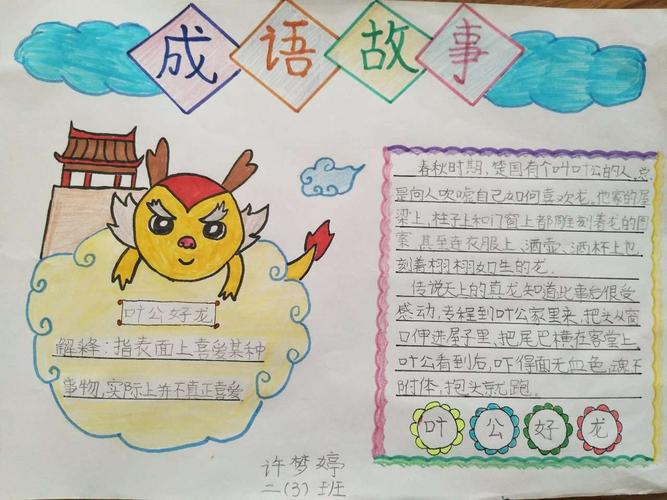 成语故事
叶公好龙
解释：指表面上喜爱某种
事物，实际上并不真正喜爱
春秋时期，楚国有个叫叶公的人，总
是向人吹嘘自己如何喜欢龙。他家的屋
梁上，柱子上和门窗上都雕刻着龙的图
案，甚至连衣服上、酒壶、酒杯上也
刻着栩栩如生的龙。
传说天上的真龙知道此事后很受
感动，专程到叶公家里来，把头从窗
口伸进屋子里，把尾巴横在客堂上，
叶公看到后，吓得面无血色，魂不
附体，抱头就跑。
叶公好龙
许梦婷
二(3)班